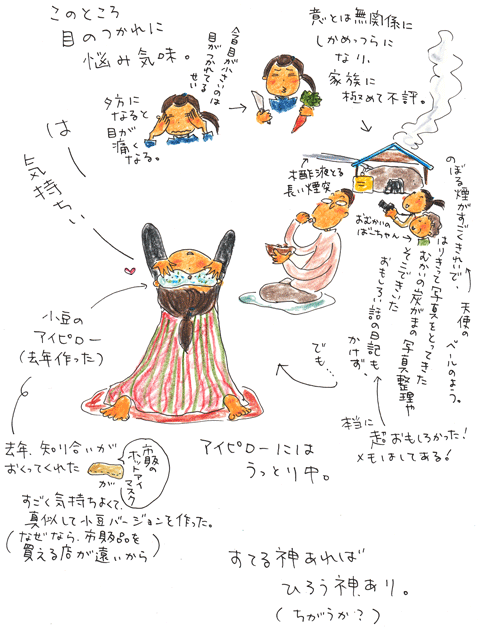 このところ
目のつかれに
悩み気味。
夕方に
なると
目が
痛く
なる。
今目が小さいのは
目がつかれてる
せい
意とは無関係に
しかめっつらに
なり、
家族に
極めて不評。
木酢液とる
長い煙突。
おむかいの
ばーちゃん
のぼる煙がすごくきれいで、
天使の
ベールのよう。
はりきって写真をとってきた
むかいの炭がまの写真整理や
そこできいた
おもしろい話の日記も
かけず、
本当に
超おもしろかった!
メモはしてある!
でも…
は〜
気持ちいい
小豆の
アイピロー
(去年作った)
アイピローには
うっとり中。
去年、知り合いが
おくってくれた
市販の
ホットアイ
マスク
が
すごく気持ちよくて、
真似して小豆バージョンを作った。
(なぜなら、市販品を
買える店が遠いから)
すてる神あれば
ひろう神あり。
(ちがうか?)